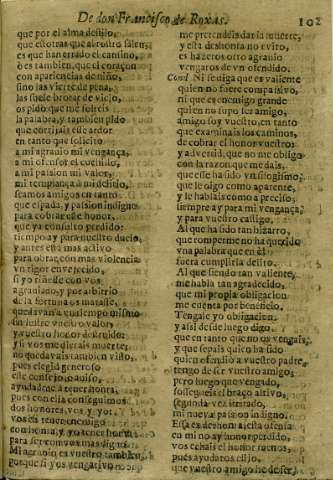 De don Francisco de Roxas. 102
que por el alma desisso,
que estotras que al rostro salen,
es que han errado el camino,
ò es tambien, que el coraçon
con apariencias de niño,
sino las vierte de pena,
las suele brotar de viejo,
os pido que me deis
la palabra, y tambien pido
que corrijais esse ardor
en tanto que solicito
à mi agrauio mi vengança,
a mi ofensor el cuchillo,
a mi passion mi valor,
mi templança à mi delito,
seamos amigos en tanto
que espada, y passion indignos
para cobrar este honor,
que ya consulto perdido:
tiempo ay para nuestro duelo,
y antes està mas actiuo
para obrar con mas violencia
vn rigor enuejecido,
si yo riñesse con vos
agrauiado, y por arbitrio
de la fortuna os matasse,
quedauan a vn tiempo mismo
sin lustre vuestro valor
y vuestro honor destruido:
si vos me dierais muerte,
no quedauais tambien visto,
pues elegid generoso
este consejo, o auiso,
ayudadme a tener honra,
pues con ella conseguimos
dos honores, vos, y yo,
vos en tener enemigo
con honra, y yo tener honra
para ser con vos mas digno.
Mi agrauio es vuestro tambien,
porque si yos vengatiuo
me pretendeis dar la muerte,
y esta deshonra no euito,
es hazeros otro agrauio
vengaros de vn ofendido.
Cond. Ni se diga que es valiente
quien no fuere compassiuo,
ni que es enemigo grande
quien no supo ser amigo,
amigo soy vuestro en tanto
que examinais los caminos,
de cobrar el honor vuestro:
y aduertid, que no me obligo
con la razon que me dais,
que esse ha sido vn silogismo,
que le oigo como aparente,
y le hablais como à preciso,
siempre ay para mi vengança,
y para vuestro castigo.
Al que ha sido tan bizarro,
que romperme no ha querido
vna palabra que en èl
fuera cumplirla delito.
Al que siendo tan valiente,
me habla tan agradecido,
que mi propia obligacion
me cuenta por beneficio.
Tengale yo obligacion,
y assi desde luego digo,
que en tanto que no os vengais,
y que sepais quien ha sido
quien ofendio a vuestro padre,
tengo de ser vuestro amigo:
pero luego que vengado,
sosseguéis el braço actiuo,
segunda vez irritado,
mi nueua passion indigno.
Essa es deshonra, esta ofensa
en mi no ay honor perdido,
vos echais el honor menos,
pues ayudaros elijo,
que vuestro amigo he de ser,